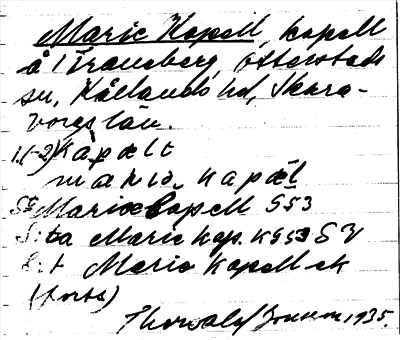 Marie Kapell, kapell
å Traneberg, Otterstads
sn, Kållands hd, Skara-
borgs län.
1. (-2) kapält
maria kapäl
Marie Capell 553
S:ta Marie Kap. KG53 SV
S:t Maria Kapell ek
(forts)
Thorvald Jonsson 1935.